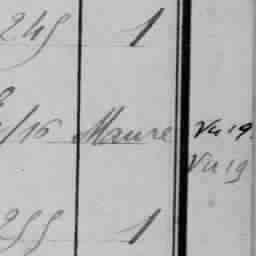 245 1
/16 Maure Vu 19
Vu 19
255 1